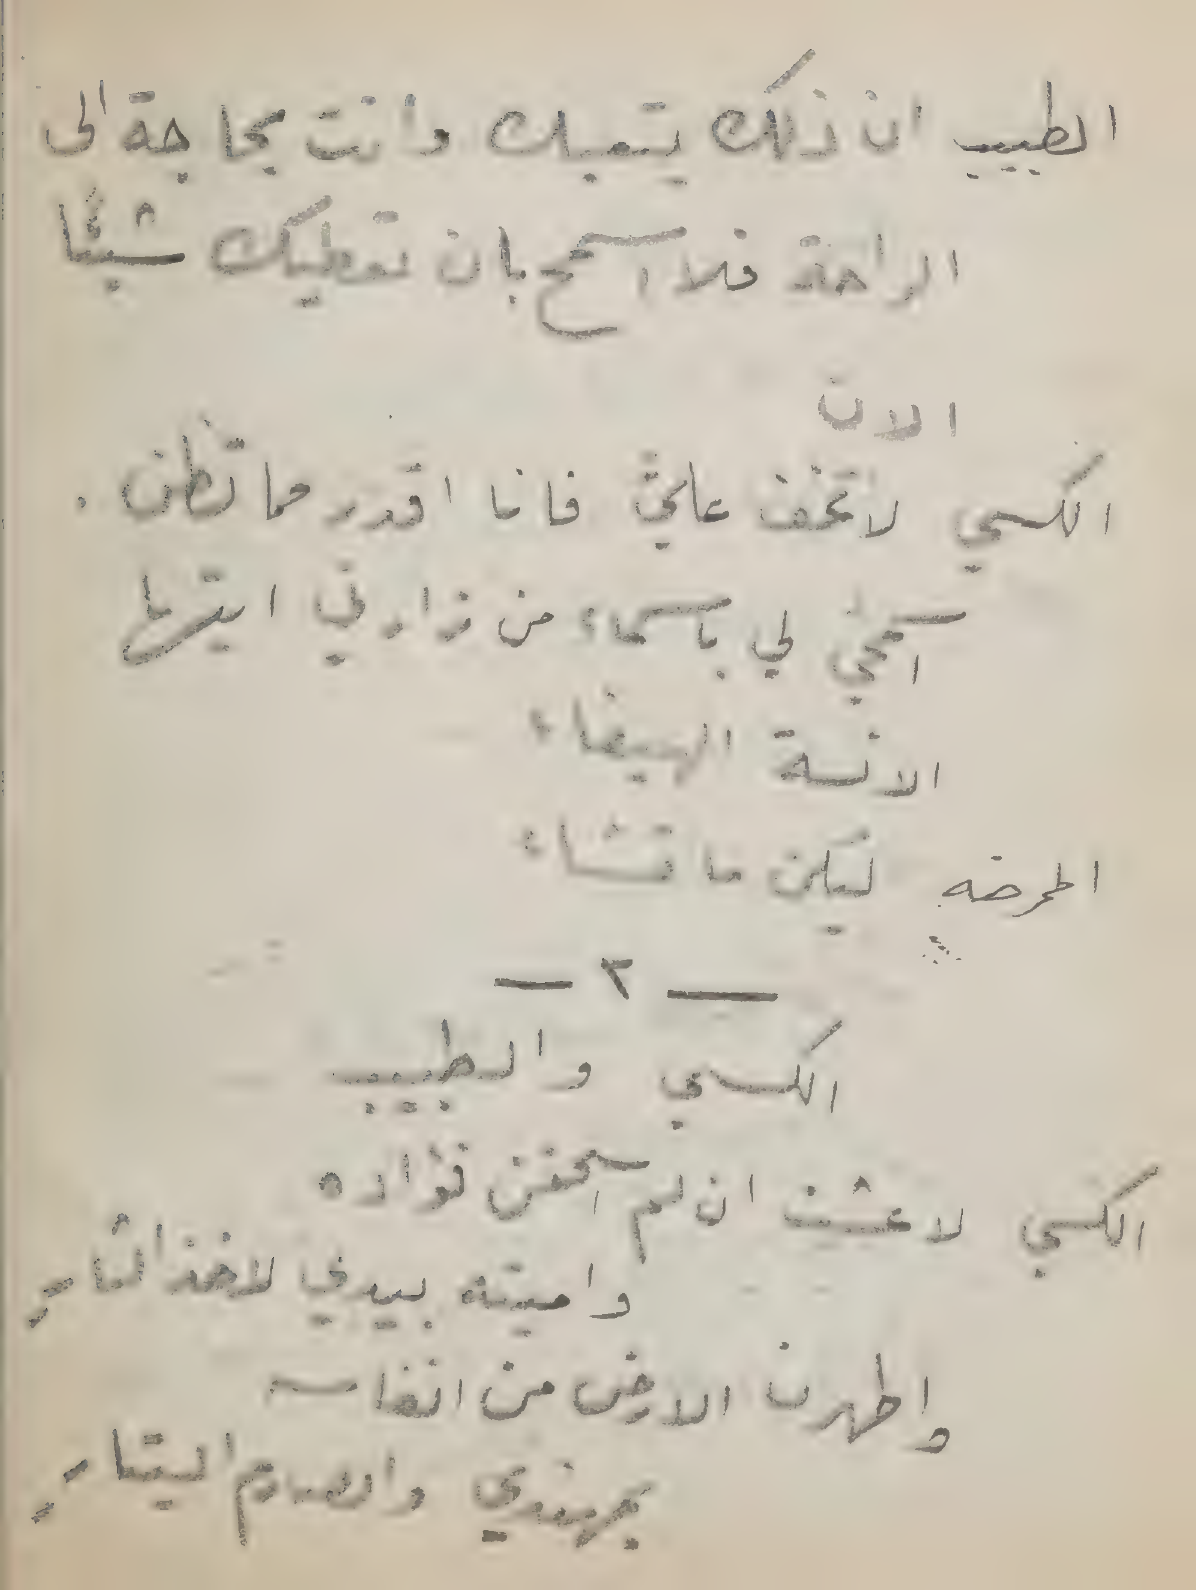 الطبيب ان ذلك يتعبك وانت بحاجة الى
الراحة فلا اسمح بان تعطيك شيئًا
الان
الكسي لا تخف علي فانا اقدر مما تظن .
اسمحي لي باسماء من زارني ايتها
الانسة الهيفاء
الممرضه ليكن ما تشاء
— ٣ —
الكسي والطبيب
الكسي لا عشت ان لم اسحقن فؤاده
واميته بيدي لاخذ الثار
واطهرن الارض من انفاسه
بمهندي والصارم البتار